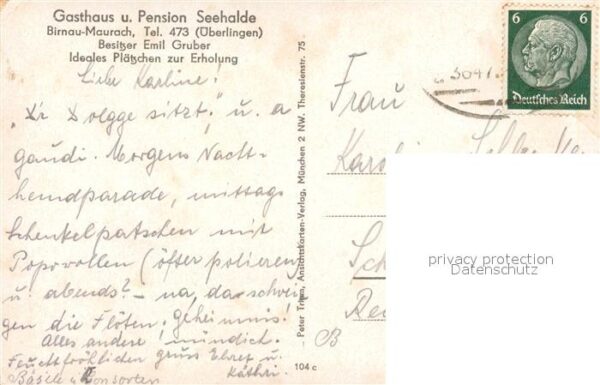 Gasthaus u. Pension Seehalde
Birnau-Maurach, Tel. 473 (Überlingen)
Besitzer Emil Gruber
Ideales Plätzchen zur Erholung
Liebe Karline!
"D'r Dolgge sitzt," u. a
gaudi. Morgens Nacht-
hemdparade, mittags
Schenkelpatschen mit
Popovollen (öfter polieren)
u. abends? - na, da schwei-
gen die Flöten, geheimnis!
Alles andere mündich.
Feuchtfröhlichen gruss Ehret u.
Käthri.
Bäsele u. Konsorten
Peter Trien, Ansichtskarten-Verlag, München 2 NW. Theresienstr. 75
104 c
6 6
Deutsches Reich
Frau
Karolin
Sch
B
privacy protection
Datenschutz